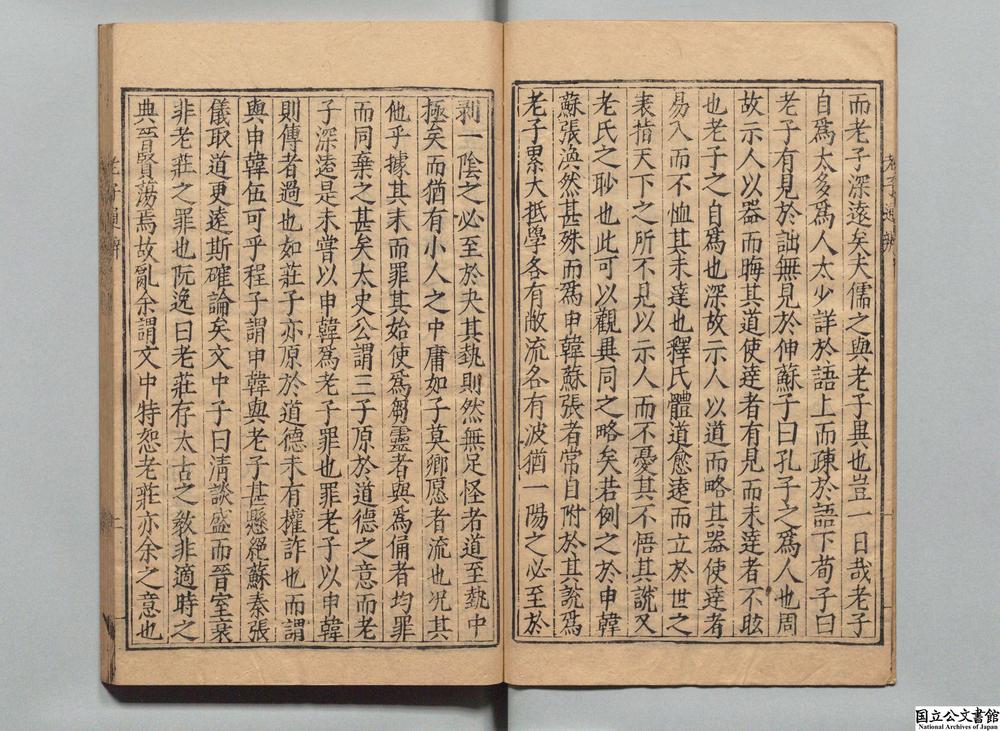 而老子深遠矣夫儒之與老子異也豈一日哉老子
自爲太多爲人太少詳於語上而疎於語下荀子曰
老子有見於詘無見於伸蘇子曰孔子之爲人也周
故示人以器而晦其道使達者有見而未達者不眩
也老子之自爲也深故示人以道而略其器使達者
易入而不恤其未達也釋氏體道愈遠而立於世之
表指天下之所不見以示人而不憂其不悟其說又
老氏之耻也此可以觀異同之略矣若例之於申韓
蘇張渙然甚殊而爲申韓蘇張者常自附於其說爲
老子累大抵學各有敝流各有波猶一陽之必至於
剥一陰之必至於夬其埶則然無足怪者道至埶中
極矣而猶有小人之中庸如子莫鄉愿者流也况其
他乎據其末而罪其始使爲芻靈者與爲俑者均罪
而同棄之甚矣太史公謂三子原於道德之意而老
子深遠是未嘗以申韓爲老子罪也罪老子以申韓
則傳者過也如莊子亦原於道德未有權詐也而謂
與申韓伍可乎程子謂申韓與老子甚懸絕蘇秦張
儀取道更遠斯確論矣文中子曰清談盛而晉室衰
非老莊之罪也阮逸曰老莊存太古之教非適時之
典晉賢蕩焉故亂余謂文中特恕老莊亦余之意也
国立公文書館
National Archives of Japan